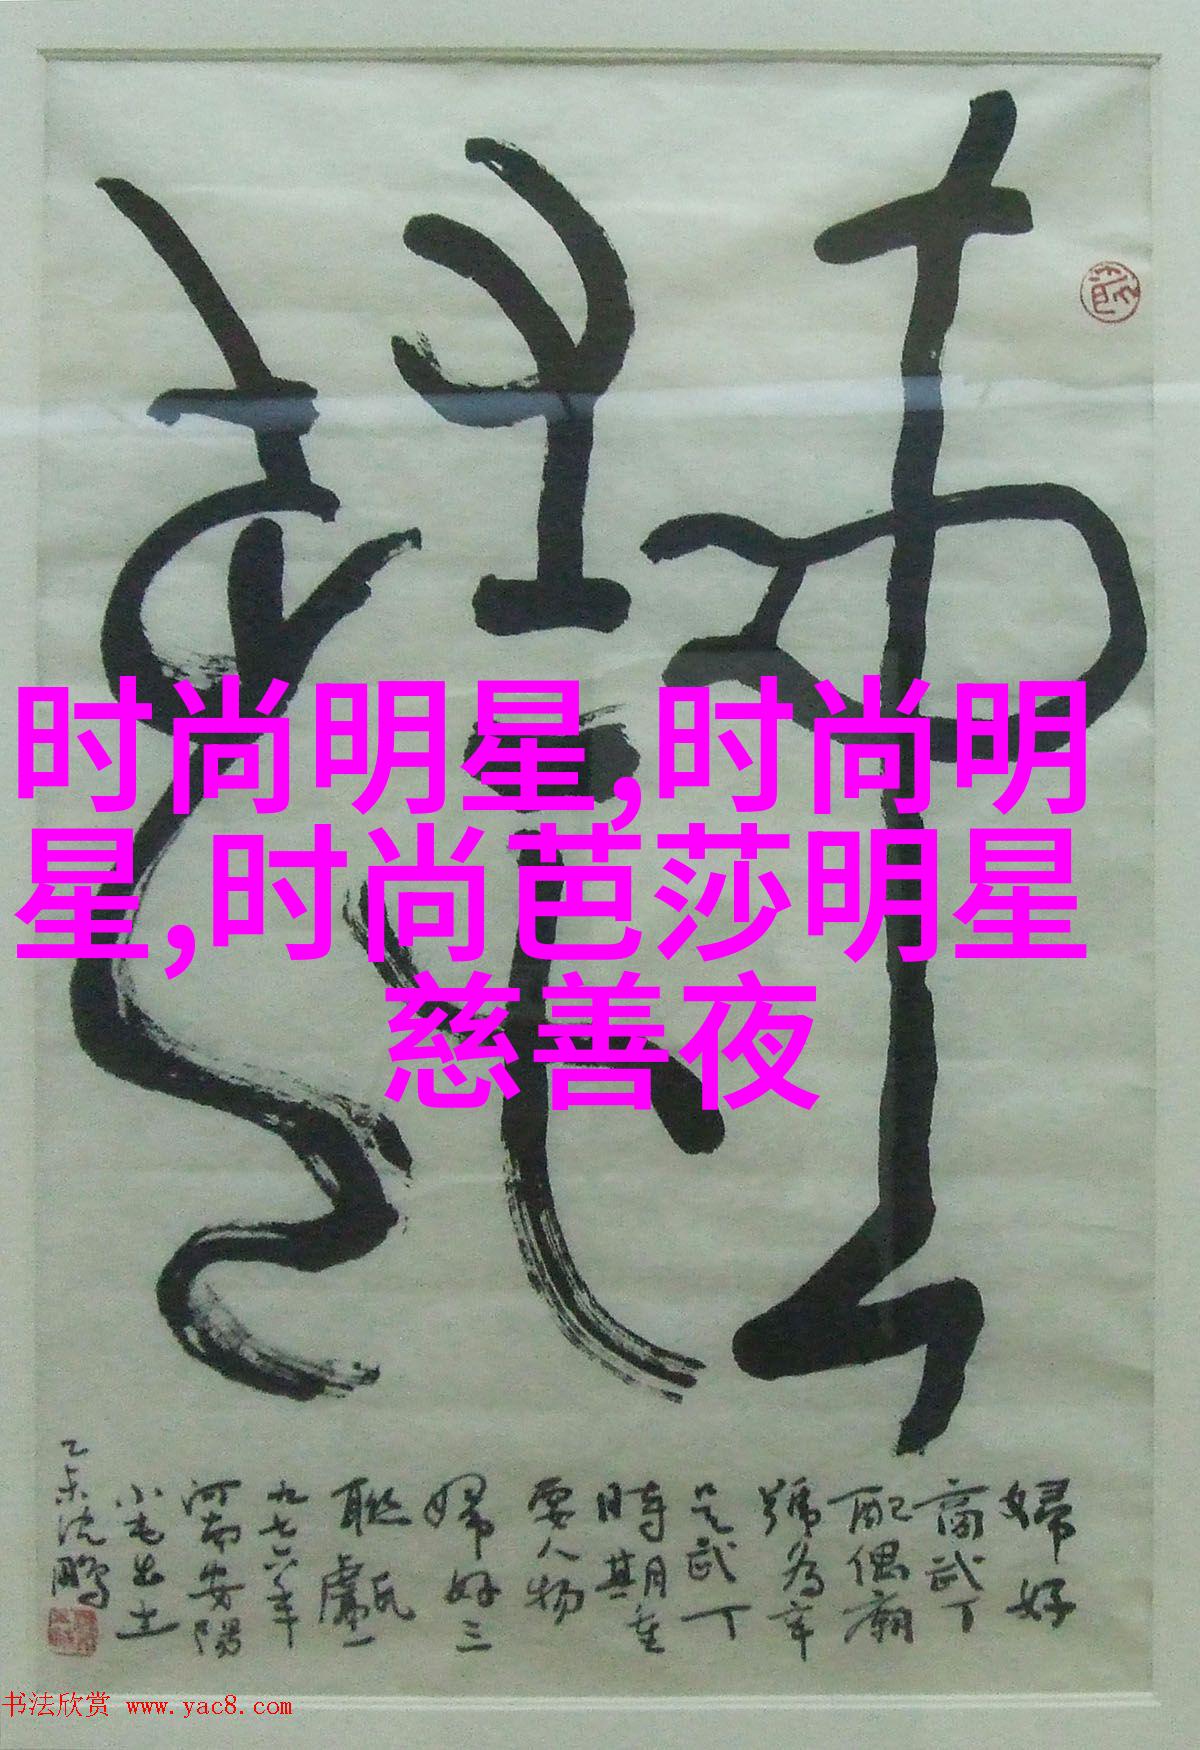 时尚明星,时尚明
星,时尚芭莎明星
慈善夜
婦好
商武丁
配偶廟
號为辛
是武丁
時期重
要人物
婦好三
聯甗一
九七六年
河南安陽
小屯出土
乙未沈鹏
书法欣赏 www.yac8.com